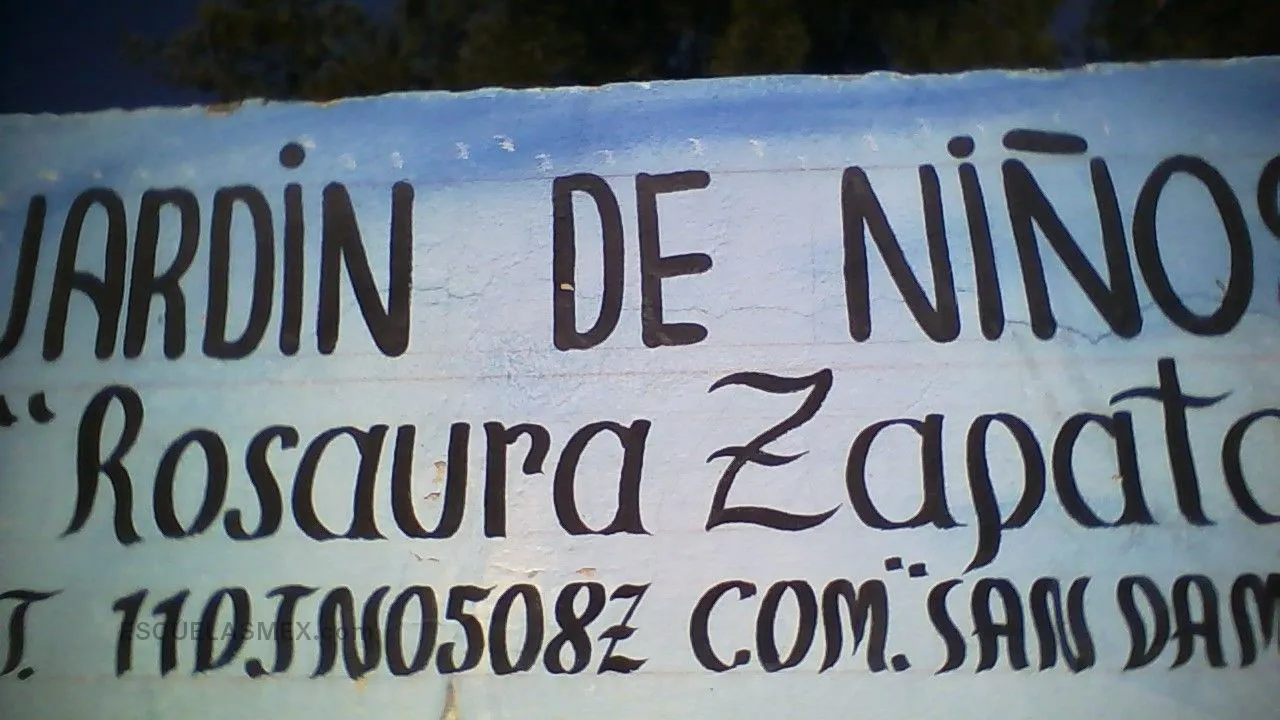 JARDIN DE NIÑOS
"Rosaura Zapata
T. 11DJN0508Z COM. "SAN DAM
ESCUELASMEX.com